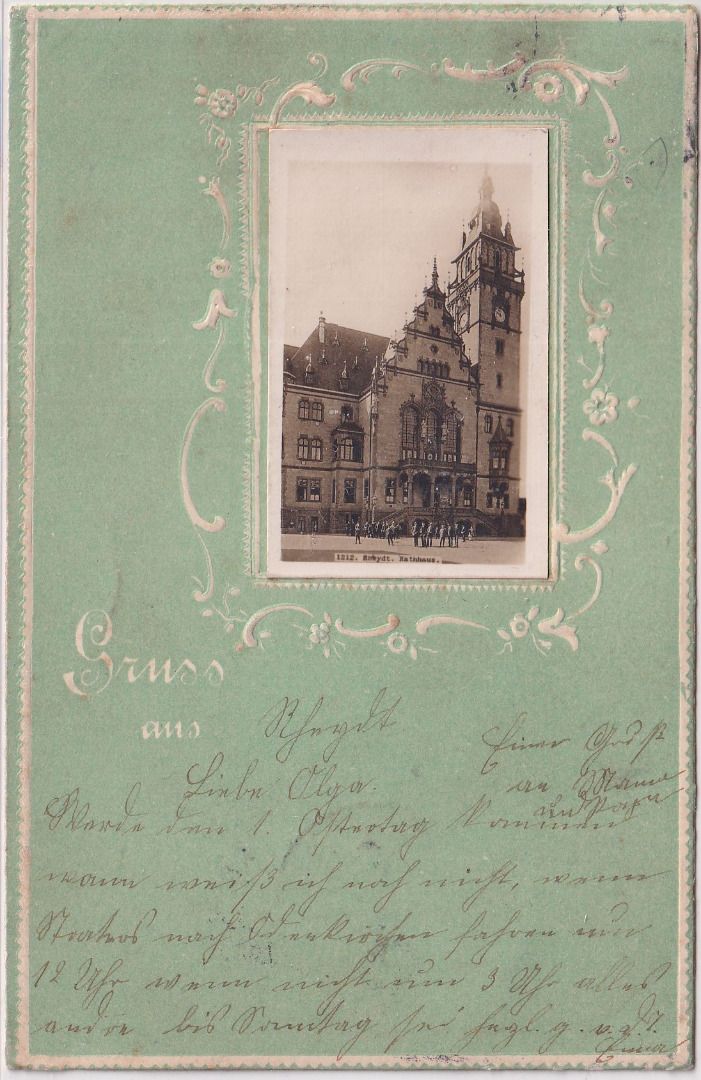 1212. Rheydt. Rathhaus.
Gruss
aus Rheydt
Einen Gruß
an Mama
und Papa
Liebe Olga.
Werde den 1. Ostertag kommen
wann weiß ich noch nicht, wenn
nach Odenkirchen fahren um
12 Uhr wenn nicht um 3 Uhr alles
andre bis Sonntag sei hrzl. g. v. d.
Emma